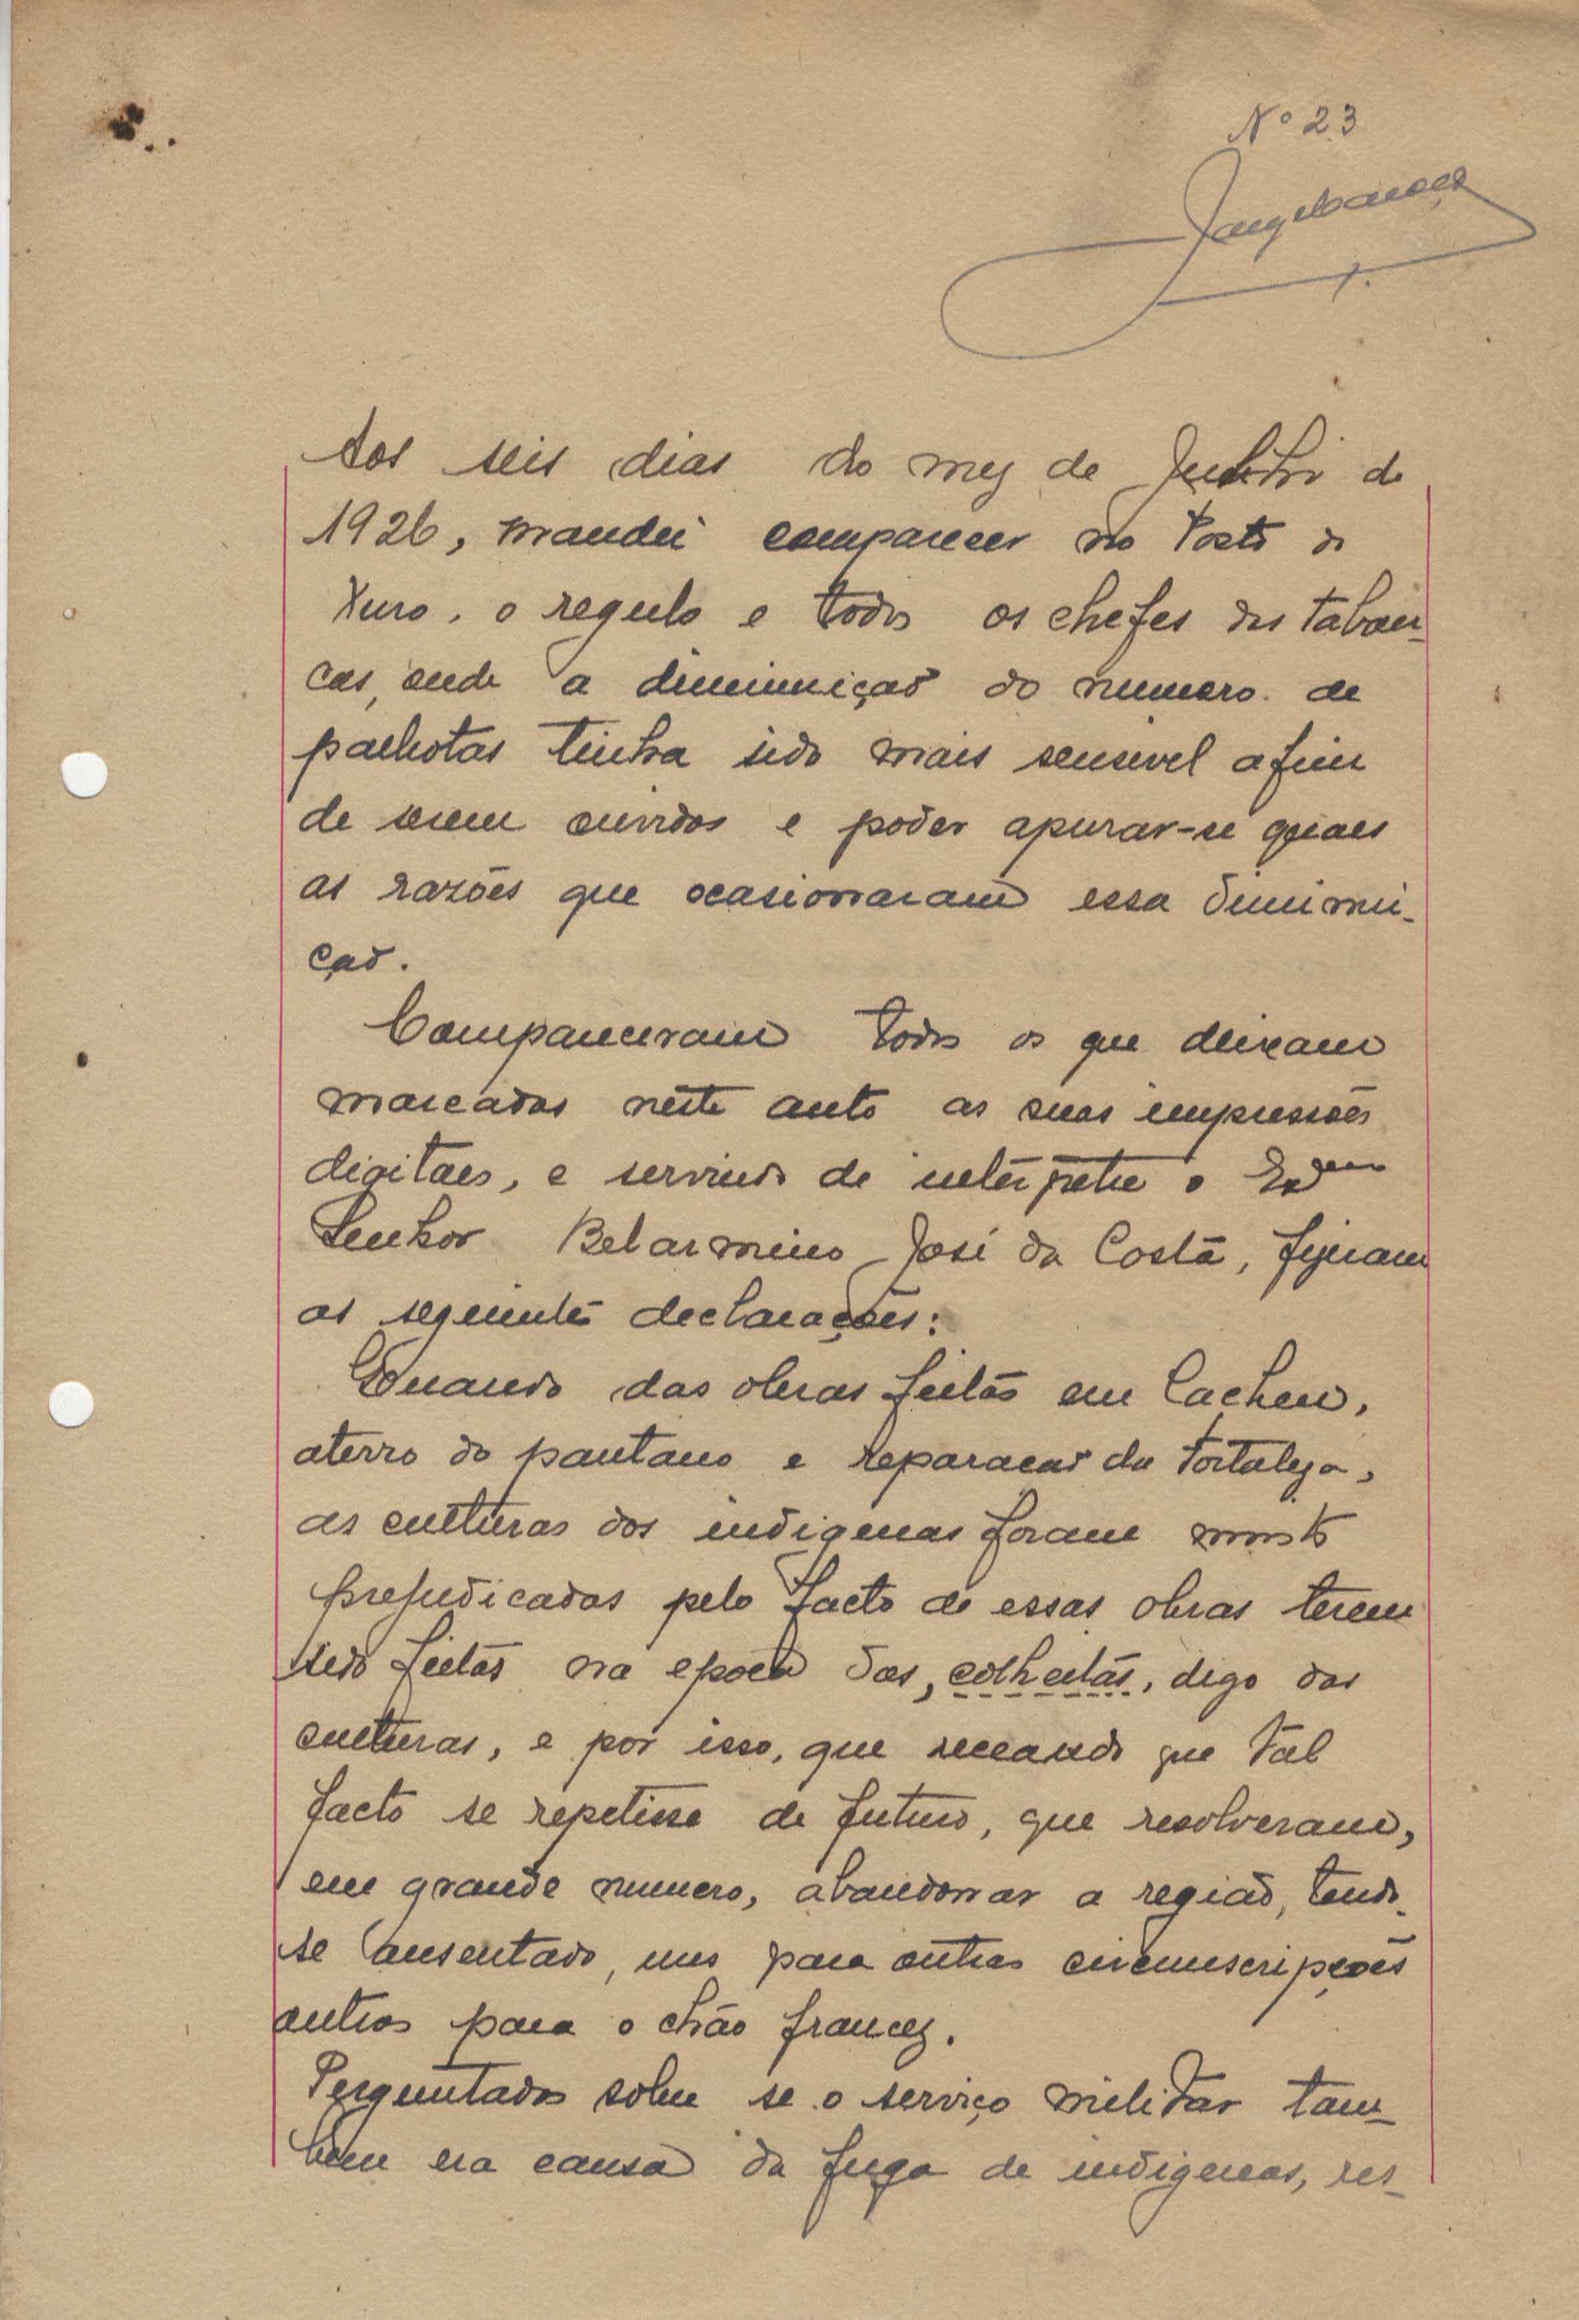 Nº 23
Aos seis dias do mez de de
1926, mandei comparecer no Posto de
Xuro, o regulo e todos os chefes das taban-
cas, onde a diminuição do numero de
palhotas tinha sido mais sensivel afim
de serem ouvidos e poder apurar-se quaes
as razões que ocasionaram essa diminui-
ção.
Compareceram todos os que deixam
marcadas neste auto as suas impressões
digitaes, e servindo de interpetre o Exmo
Senhor Belarmino José da Costa, fizeram
as seguintes declarações:
Quando das obras feitas em Cacheu,
aterro do pantano e reparacão da Fortaleza,
as culturas dos indigenas foram muito
prejudicadas pelo facto de essas obras terem
sido feitas na epoca das, colheitas, digo das
culturas, e por isso, que receando que tal
facto se repetisse de futuro, que resolveram,
em grande numero, abandonar a região, tendo-
se ausentado, uns para outras circunscripções
outros para o chão francez.
Perguntados sobre se o serviço militar tam-
bem era causa da fuga de indigenas, res-